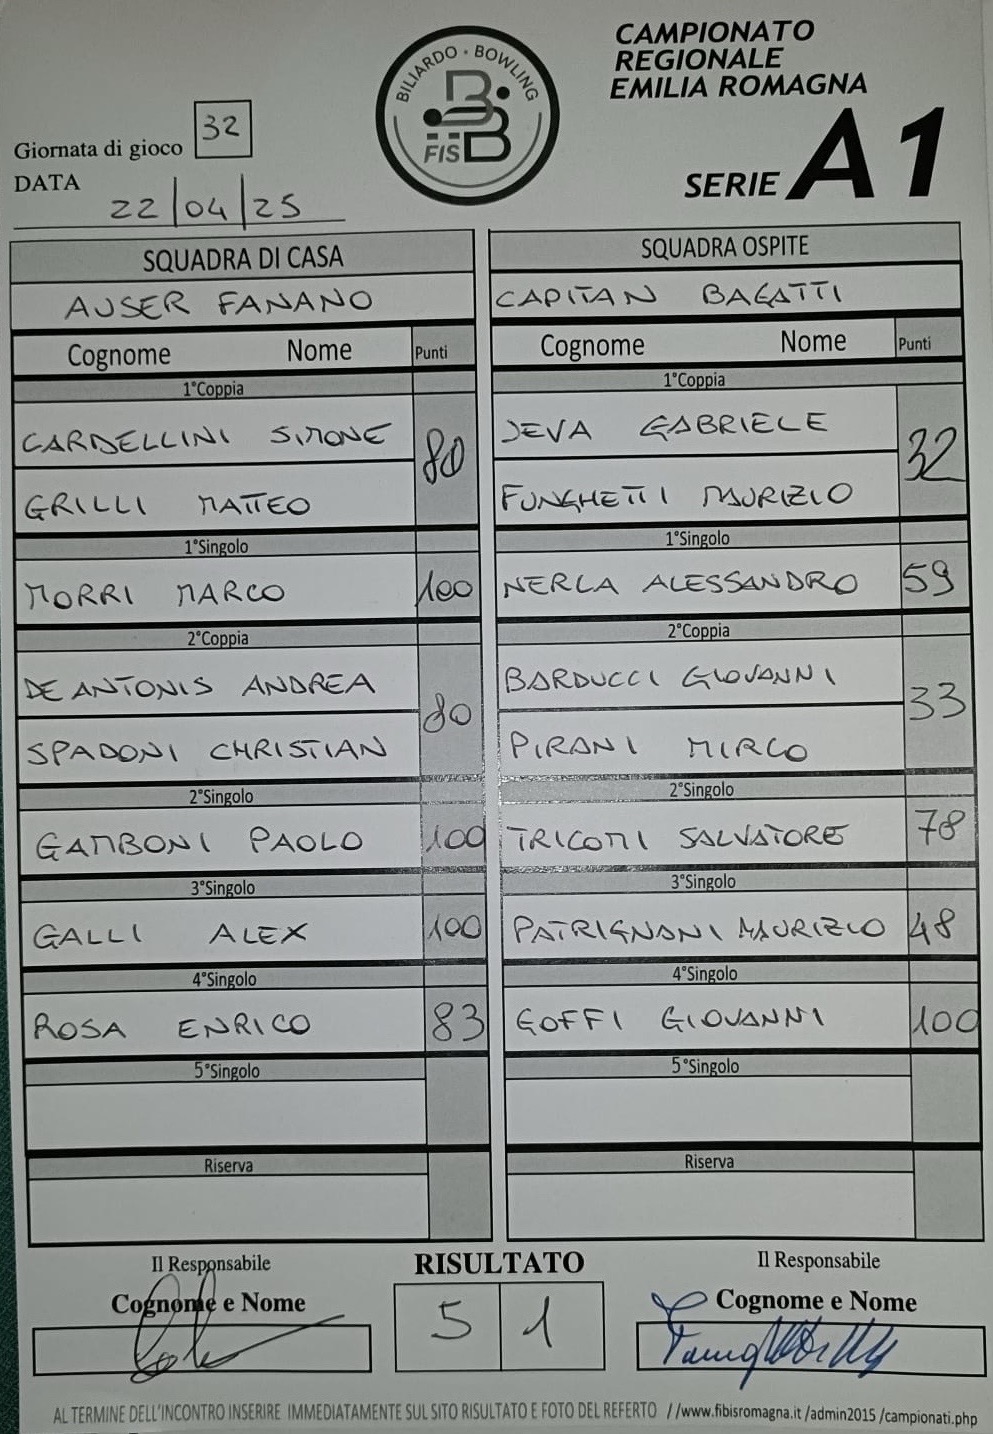 CAMPIONATO
REGIONALE
EMILIA ROMAGNA
SERIE A1
BILIARDO · BOWLING
FISBB
Giornata di gioco 32
DATA
22/04/25
SQUADRA DI CASA
AUSER FANANO
Cognome Nome Punti
1°Coppia
CARDELLINI SIMONE
80
GRILLI MATTEO
1°Singolo
MORRI MARCO 100
2°Coppia
DE ANTONIS ANDREA
80
SPADONI CHRISTIAN
2°Singolo
GAMBONI PAOLO 100
3°Singolo
GALLI ALEX 100
4°Singolo
ROSA ENRICO 83
5°Singolo
Riserva
SQUADRA OSPITE
CAPITAN BAGATTI
Cognome Nome Punti
1°Coppia
JEVA GABRIELE
32
FUNGHETTI MAURIZIO
1°Singolo
NERLA ALESSANDRO 59
2°Coppia
BARDUCCI GIOVANNI
33
PIRANI MIRCO
2°Singolo
TRICOMI SALVATORE 78
3°Singolo
PATRIGNANI MAURIZIO 48
4°Singolo
GOFFI GIOVANNI 100
5°Singolo
Riserva
Il Responsabile
Cognome e Nome
RISULTATO
5 1
Il Responsabile
Cognome e Nome
AL TERMINE DELL'INCONTRO INSERIRE IMMEDIATAMENTE SUL SITO RISULTATO E FOTO DEL REFERTO //www.fibisromagna.it /admin2015 /campionati.php